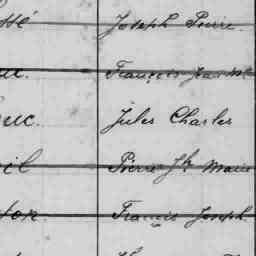 Joseph Pierre
François Jean M
uc. Jules Charles
il Pierre Jh Marie
tor François Joseph